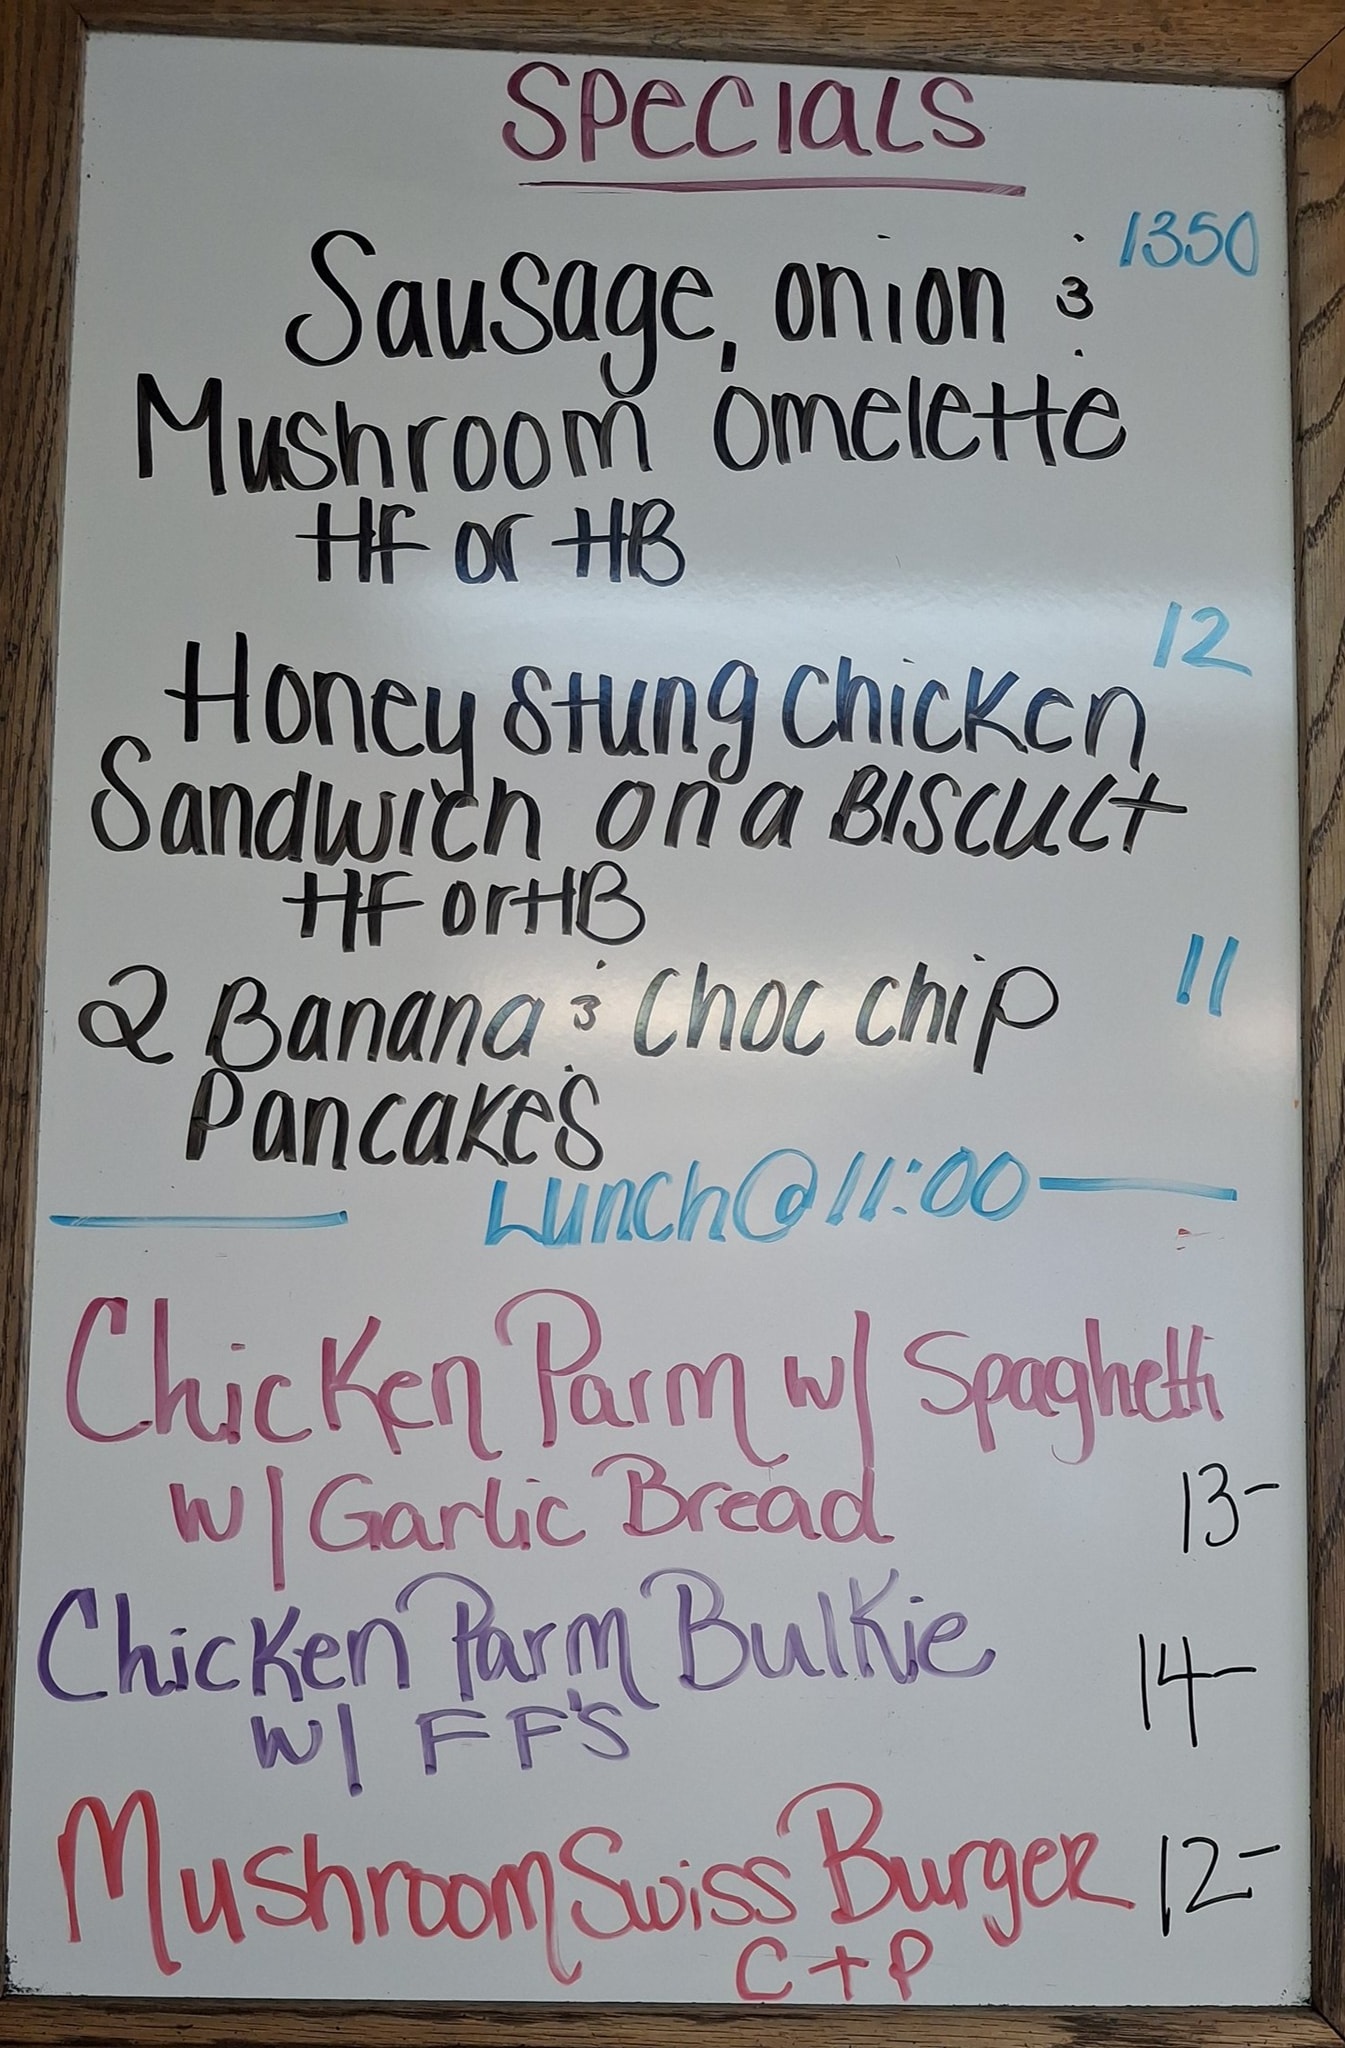 SPECIALS
1350
Sausage, onion &
Mushroom omelette
HF or HB
12
Honey Stung Chicken
Sandwich on a BISCUIT
HF or HB
2 Banana & Choc chip 11
Pancakes
Lunch@11:00
Chicken Parm w/ Spaghetti
w/ Garlic Bread 13-
Chicken Parm Bulkie 14-
w/ FF'S
Mushroom Swiss Burger 12-
C+P